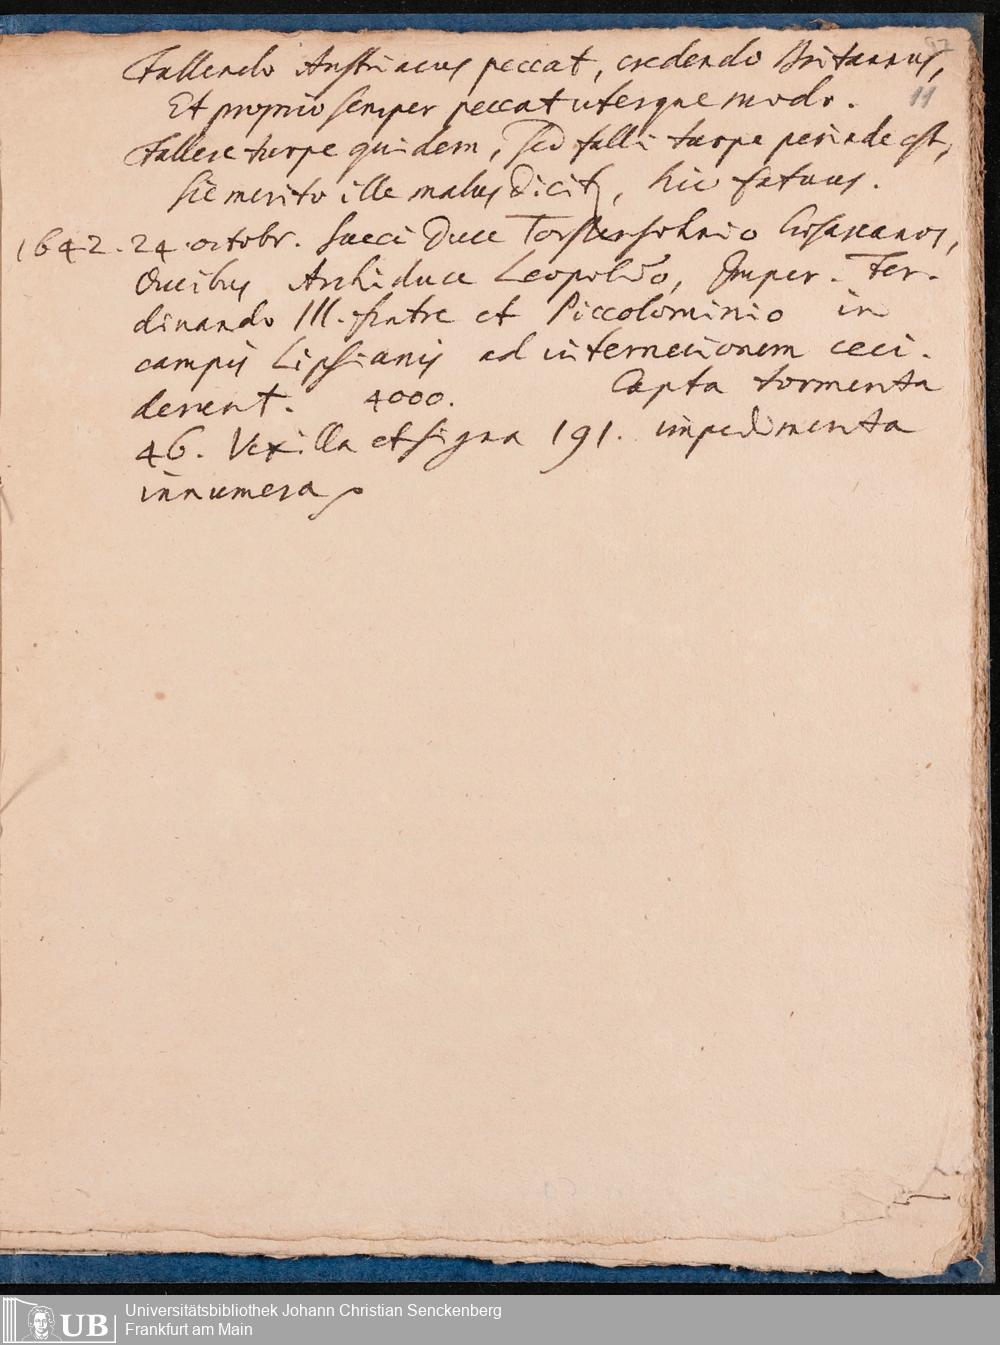 Fallendo Austriacus peccat, credendo Britannus,
11
Et proprio semper peccat uterque modo.
Fallere turpe quidem, sed falli turpe perinde est,
Sic merito ille malus dicit, hic fatuus.
1642. 24. octobr. Sueci Duce Torstensohnio Caesareanos,
Ducibus Archiduce Leopoldo, Imper. Fer-
dinando III. fratre et Piccolominio in
campis Lipsianis ad internecionem ceci-
derunt. 4000. Capta tormenta
46. Vexilla et signa 191. impedimenta
innumera
UB
Universitätsbibliothek Johann Christian Senckenberg
Frankfurt am Main